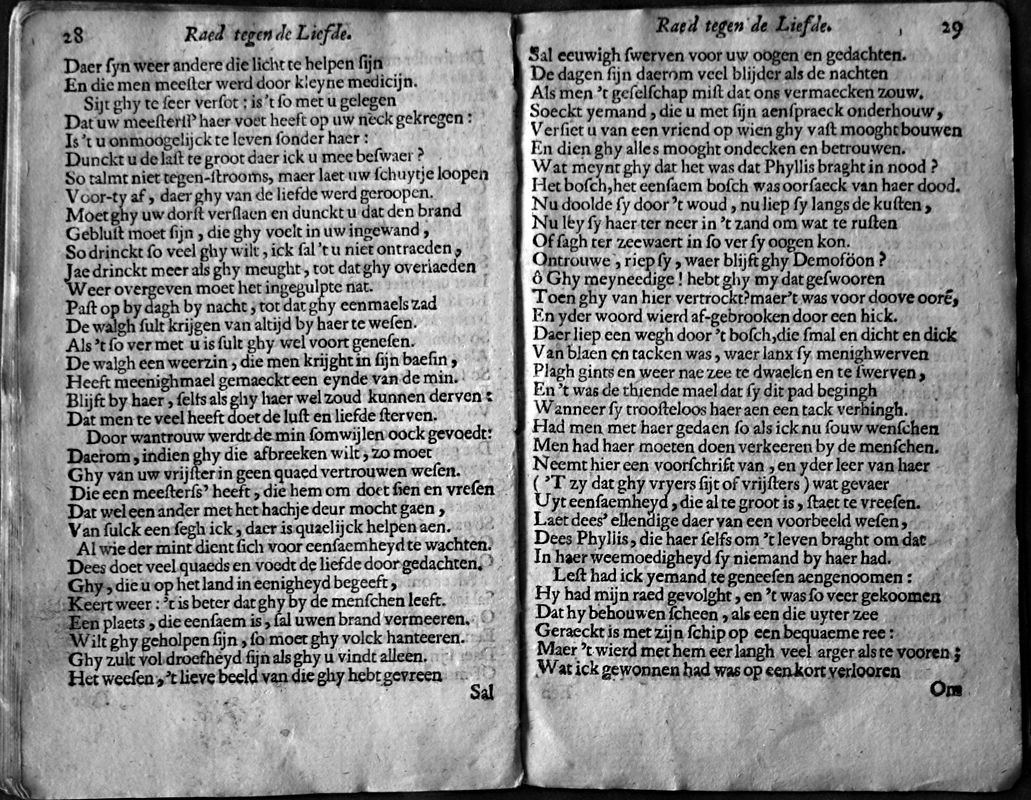 28 Raed tegen de Liefde.
Daer ſyn weer andere die licht te helpen ſijn
En die men meeſter werd door kleyne medicijn.
Sijt ghy te ſeer verſot ; is 't ſo met u gelegen
Dat uw meeſterſſ' haer voet heeft op uw neck gekregen :
Is 't u onmoogelijck te leven ſonder haer :
Dunckt u de laſt te groot daer ick u mee beſwaer ?
So talmt niet tegen-ſtrooms, maer laet uw ſchuytje loopen
Voor-ty af, daer ghy van de liefde werd geroopen.
Moet ghy uw dorſt verſlaen en dunckt u dat den brand
Gebluſt moet ſijn, die ghy voelt in uw ingewand,
So drinckt ſo veel ghy wilt, ick ſal 't u niet ontraeden,
Jae drinckt meer als ghy meught, tot dat ghy overlaeden
Weer overgeven moet het ingegulpte nat.
Paſt op by dagh by nacht, tot dat ghy eenmaels zad
De walgh ſult krijgen van altijd by haer te weſen.
Als 't ſo ver met u is ſult ghy wel voort geneſen.
De walgh een weerzin, die men krijght in ſijn baeſin,
Heeft meenighmael gemaeckt een eynde van de min.
Blijft by haer, ſelfs als ghy haer wel zoud kunnen derven :
Dat men te veel heeft doet de luſt en liefde ſterven.
Door wantrouw werdt de min ſomwijlen oock gevoedt:
Daerom, indien ghy die afbreeken wilt, zo moet
Ghy van uw vrijſter in geen quaed vertrouwen weſen.
Die een meeſterſſ' heeft, die hem om doet ſien en vreſen
Dat wel een ander met het hachje deur mocht gaen,
Van ſulck een ſegh ick, daer is quaelijck helpen aen.
Al wie der mint dient ſich voor eenſaemheyd te wachten.
Dees doet veel quaeds en voedt de liefde door gedachten.
Ghy, die u op het land in eenigheyd begeeft,
Keert weer : 't is beter dat ghy by de menſchen leeft.
Een plaets, die eenſaem is, ſal uwen brand vermeeren.
Wilt ghy geholpen ſijn, ſo moet ghy volck hanteeren.
Ghy zult vol droefheyd ſijn als ghy u vindt alleen.
Het weeſen, 't lieve beeld van die ghy hebt gevreen
Sal
Raed tegen de Liefde. 29
Sal eeuwigh ſwerven voor uw oogen en gedachten.
De dagen ſijn daerom veel blijder als de nachten
Als men 't geſelſchap miſt dat ons vermaecken zouw.
Soeckt yemand, die u met ſijn aenſpraeck onderhouw,
Verſiet u van een vriend op wien ghy vaſt mooght bouwen
En dien ghy alles mooght ondecken en betrouwen.
Wat meynt ghy dat het was dat Phyllis braght in nood ?
Het boſch, het eenſaem boſch was oorſaeck van haer dood.
Nu doolde ſy door 't woud, nu liep ſy langs de kuſten,
Nu ley ſy haer ter neer in 't zand om wat te ruſten
Of ſagh ter zeewaert in ſo ver ſy oogen kon.
Ontrouwe, riep ſy, waer blijft ghy Demoföon ?
ô Ghy meyneedige ! hebt ghy my dat geſwooren
Toen ghy van hier vertrockt? maer 't was voor doove oorē,
En yder woord wierd af-gebrooken door een hick.
Daer liep een wegh door 't boſch, die ſmal en dicht en dick
Van blaen en tacken was, waer lanx ſy menighwerven
Plagh gints en weer nae zee te dwaelen en te ſwerven,
En 't was de thiende mael dat ſy dit pad begingh
Wanneer ſy trooſteloos haer aen een tack verhingh.
Had men met haer gedaen ſo als ick nu ſouw wenſchen
Men had haer moeten doen verkeeren by de menſchen.
Neemt hier een voorſchrift van, en yder leer van haer
( 'T zy dat ghy vryers ſijt of vrijſters ) wat gevaer
Uyt eenſaemheyd, die al te groot is, ſtaet te vreeſen.
Laet dees' ellendige daer van een voorbeeld weſen,
Dees Phyllis, die haer ſelfs om 't leven braght om dat
In haer weemoedigheyd ſy niemand by haer had.
Leſt had ick yemand te geneeſen aengenoomen :
Hy had mijn raed gevolght, en 't was ſo veer gekoomen
Dat hy behouwen ſcheen, als een die uyter zee
Geraeckt is met zijn ſchip op een bequaeme ree :
Maer 't wierd met hem eer langh veel arger als te vooren ;
Wat ick gewonnen had was op een kort verlooren
Om